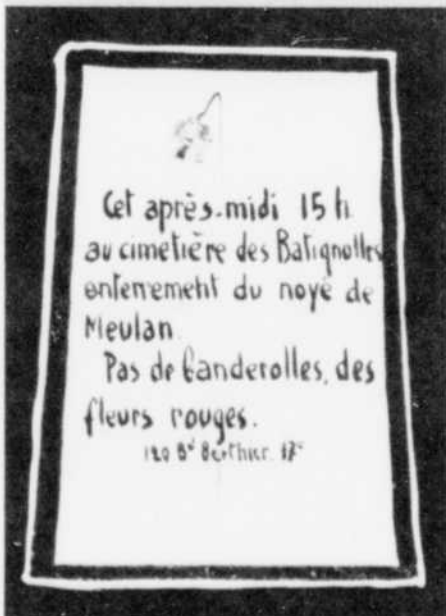 Cet après-midi 15 h
au cimetière des Batignolles
enterrement du noyé de
Meulan
Pas de banderolles, des
fleurs rouges.
120 Bd Berthier. 17e